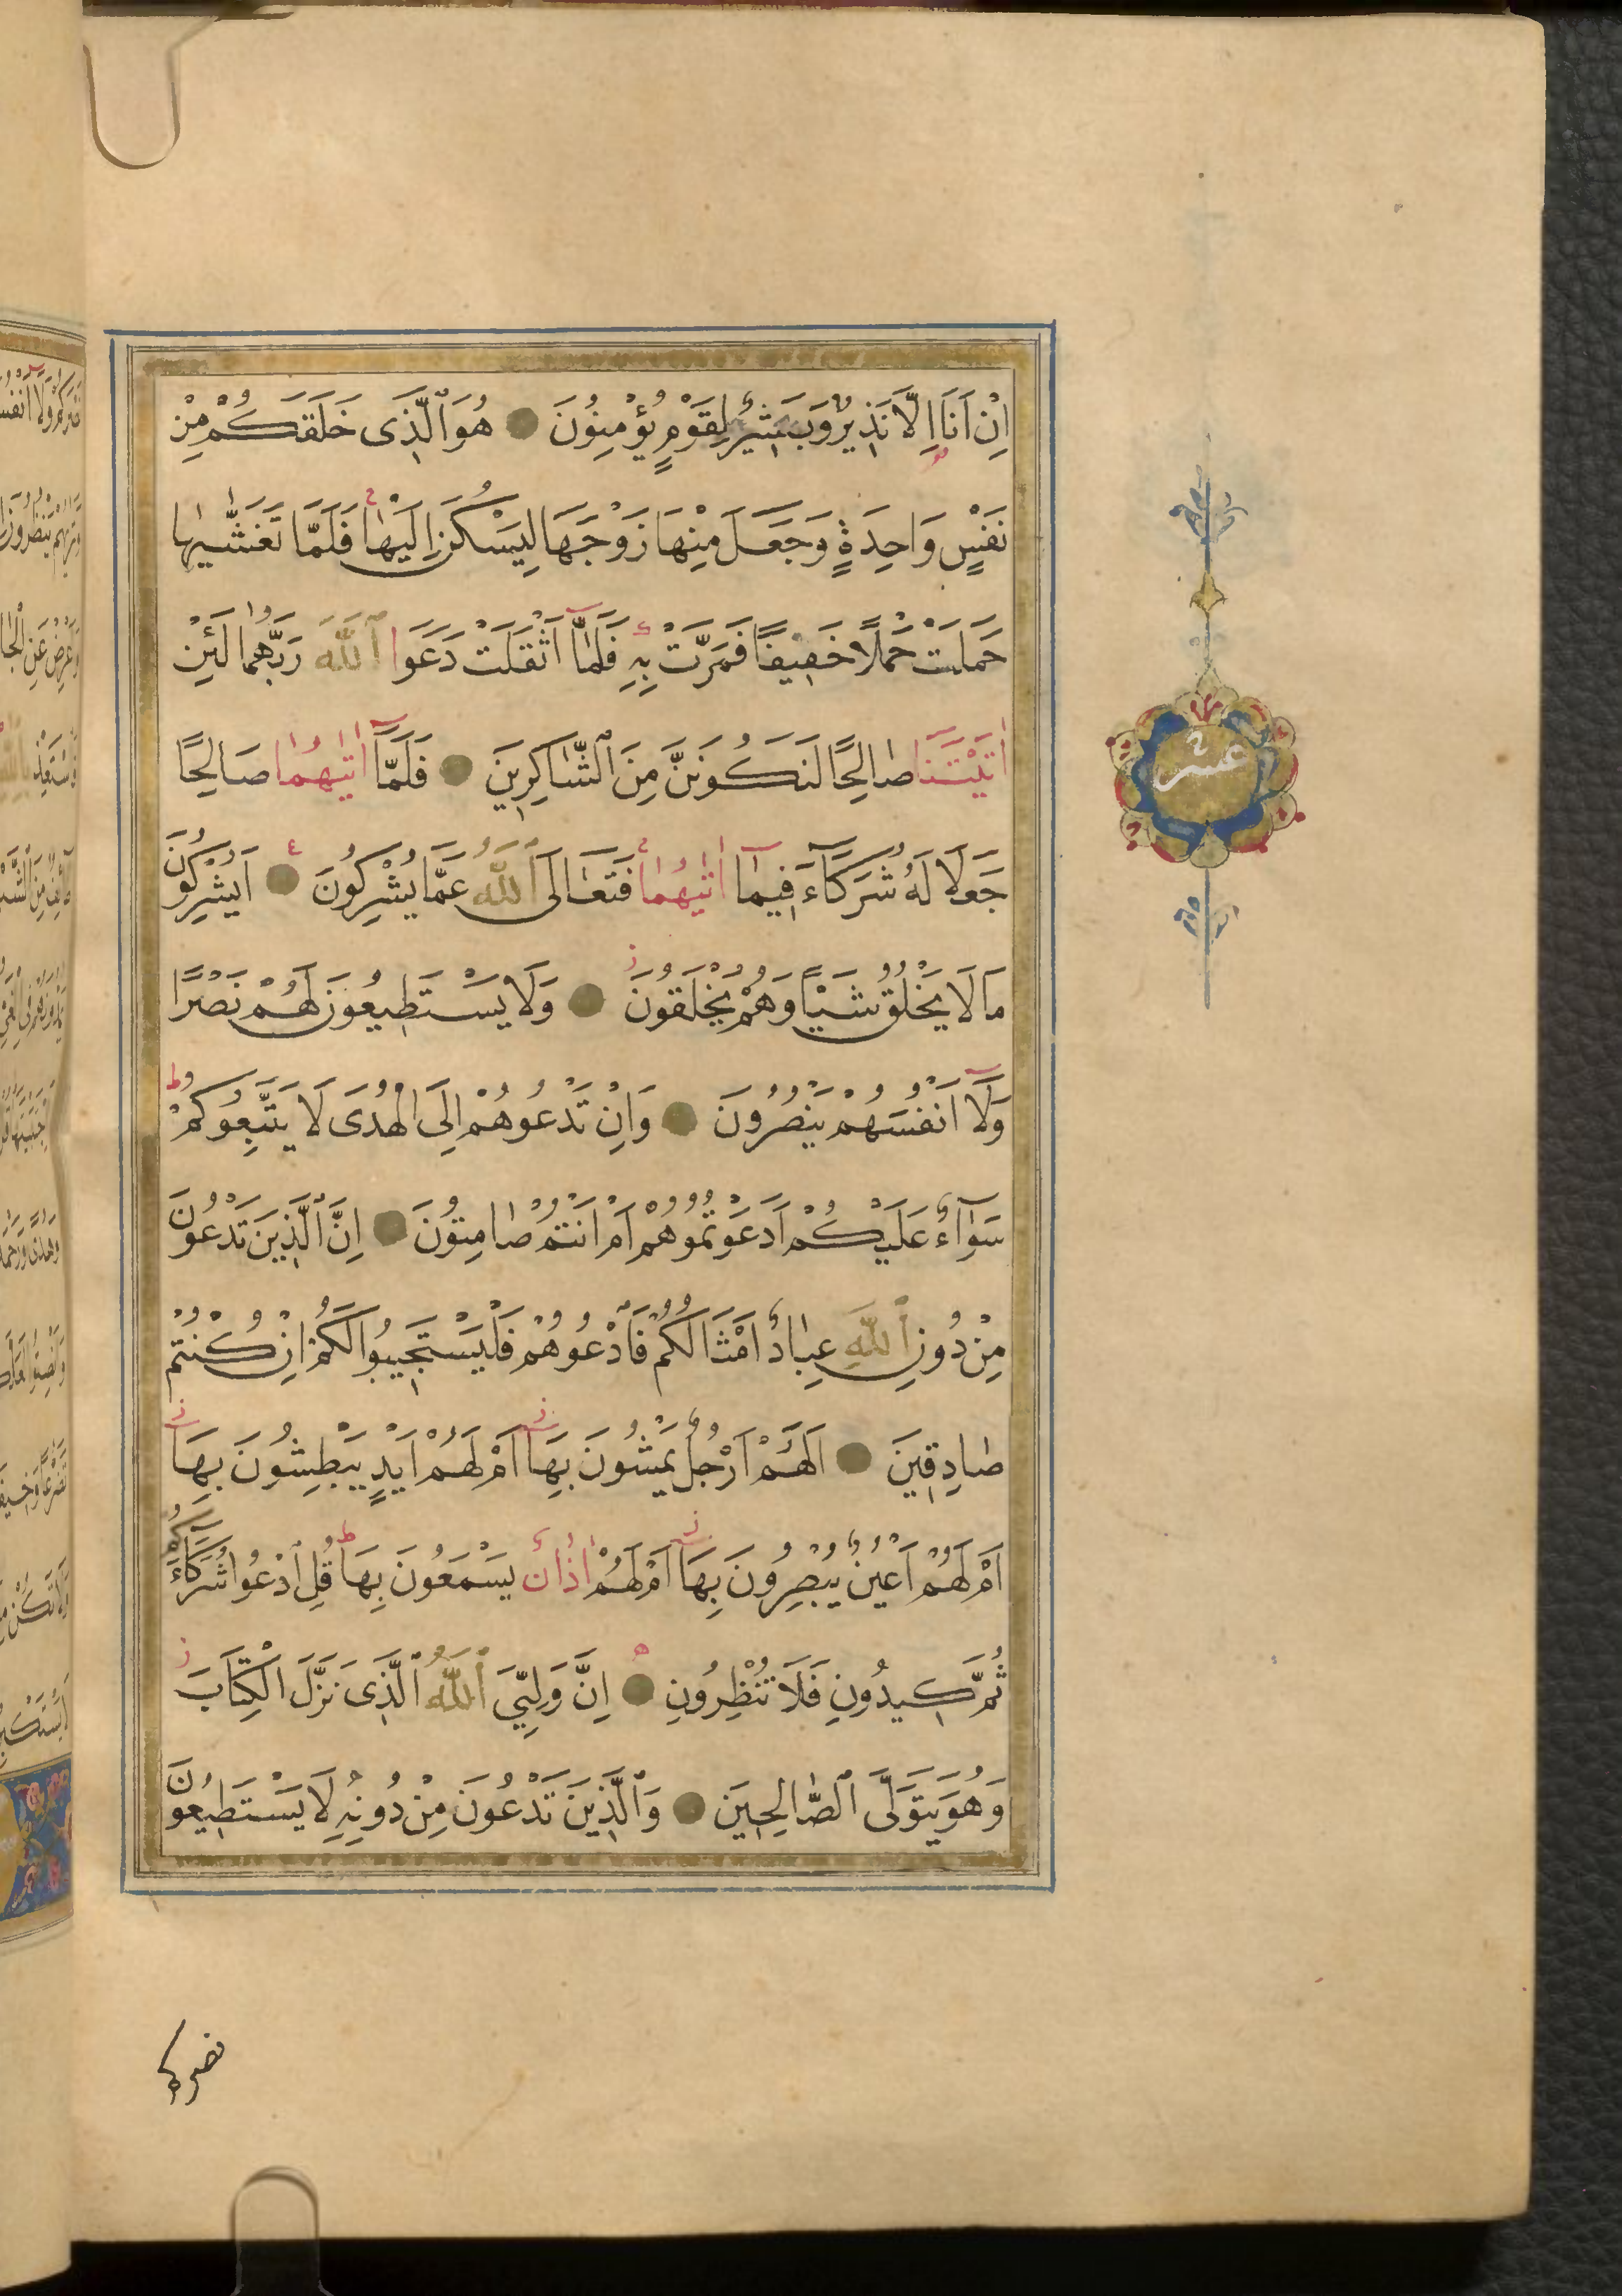 اِنْ اَنَا اِلَّا نَذِيرٌ وَبَشِيرٌ لِقَوْمٍ يُؤْمِنُونَ هُوَ ٱلَّذِى خَلَقَكُمْ مِنْ
نَفْسٍ وَاحِدَةٍ وَجَعَلَ مِنْهَا زَوْجَهَا لِيَسْكُنَ اِلَيْهَا فَلَمَّا تَغَشّٰيهَا
حَمَلَتْ حَمْلًا خَفِيفًا فَمَرَّتْ بِهِ فَلَمَّٓا اَثْقَلَتْ دَعَوَا ٱللّٰهَ رَبَّهُمَا لَئِنْ
اٰتَيْتَنَا صَالِحًا لَنَكُونَنَّ مِنَ ٱلشَّاكِرِينَ فَلَمَّٓا اٰتٰيهُمَا صَالِحًا
جَعَلَا لَهُ شُرَكَٓاءَ فِيمَٓا اٰتٰيهُمَا فَتَعَالَى ٱللّٰهُ عَمَّا يُشْرِكُونَ اَيُشْرِكُونَ
مَا لَا يَخْلُقُ شَيْـًٔا وَهُمْ يُخْلَقُونَ وَلَا يَسْتَطِيعُونَ لَهُمْ نَصْرًا
وَلَٓا اَنْفُسَهُمْ يَنْصُرُونَ وَاِنْ تَدْعُوهُمْ اِلَى الْهُدَى لَا يَتَّبِعُوكُمْ
سَوَٓاءٌ عَلَيْكُمْ اَدَعَوْتُمُوهُمْ اَمْ اَنْتُمْ صَامِتُونَ اِنَّ ٱلَّذِينَ تَدْعُونَ
مِنْ دُونِ ٱللّٰهِ عِبَادٌ اَمْثَالُكُمْ فَٱدْعُوهُمْ فَلْيَسْتَجِيبُوا لَكُمْ اِنْ كُنْتُمْ
صَادِقِينَ اَلَهُمْ اَرْجُلٌ يَمْشُونَ بِهَا اَمْ لَهُمْ اَيْدٍ يَبْطِشُونَ بِهَا
اَمْ لَهُمْ اَعْيُنٌ يُبْصِرُونَ بِهَا اَمْ لَهُمْ اٰذَانٌ يَسْمَعُونَ بِهَا قُلِ ٱدْعُوا شُرَكَٓاءَكُمْ
ثُمَّ كِيدُونِ فَلَا تُنْظِرُونِ اِنَّ وَلِيِّىَ ٱللّٰهُ ٱلَّذِى نَزَّلَ الْكِتَابَ
وَهُوَ يَتَوَلَّى ٱلصَّالِحِينَ وَٱلَّذِينَ تَدْعُونَ مِنْ دُونِهِ لَا يَسْتَطِيعُونَ
عشر
نصركم